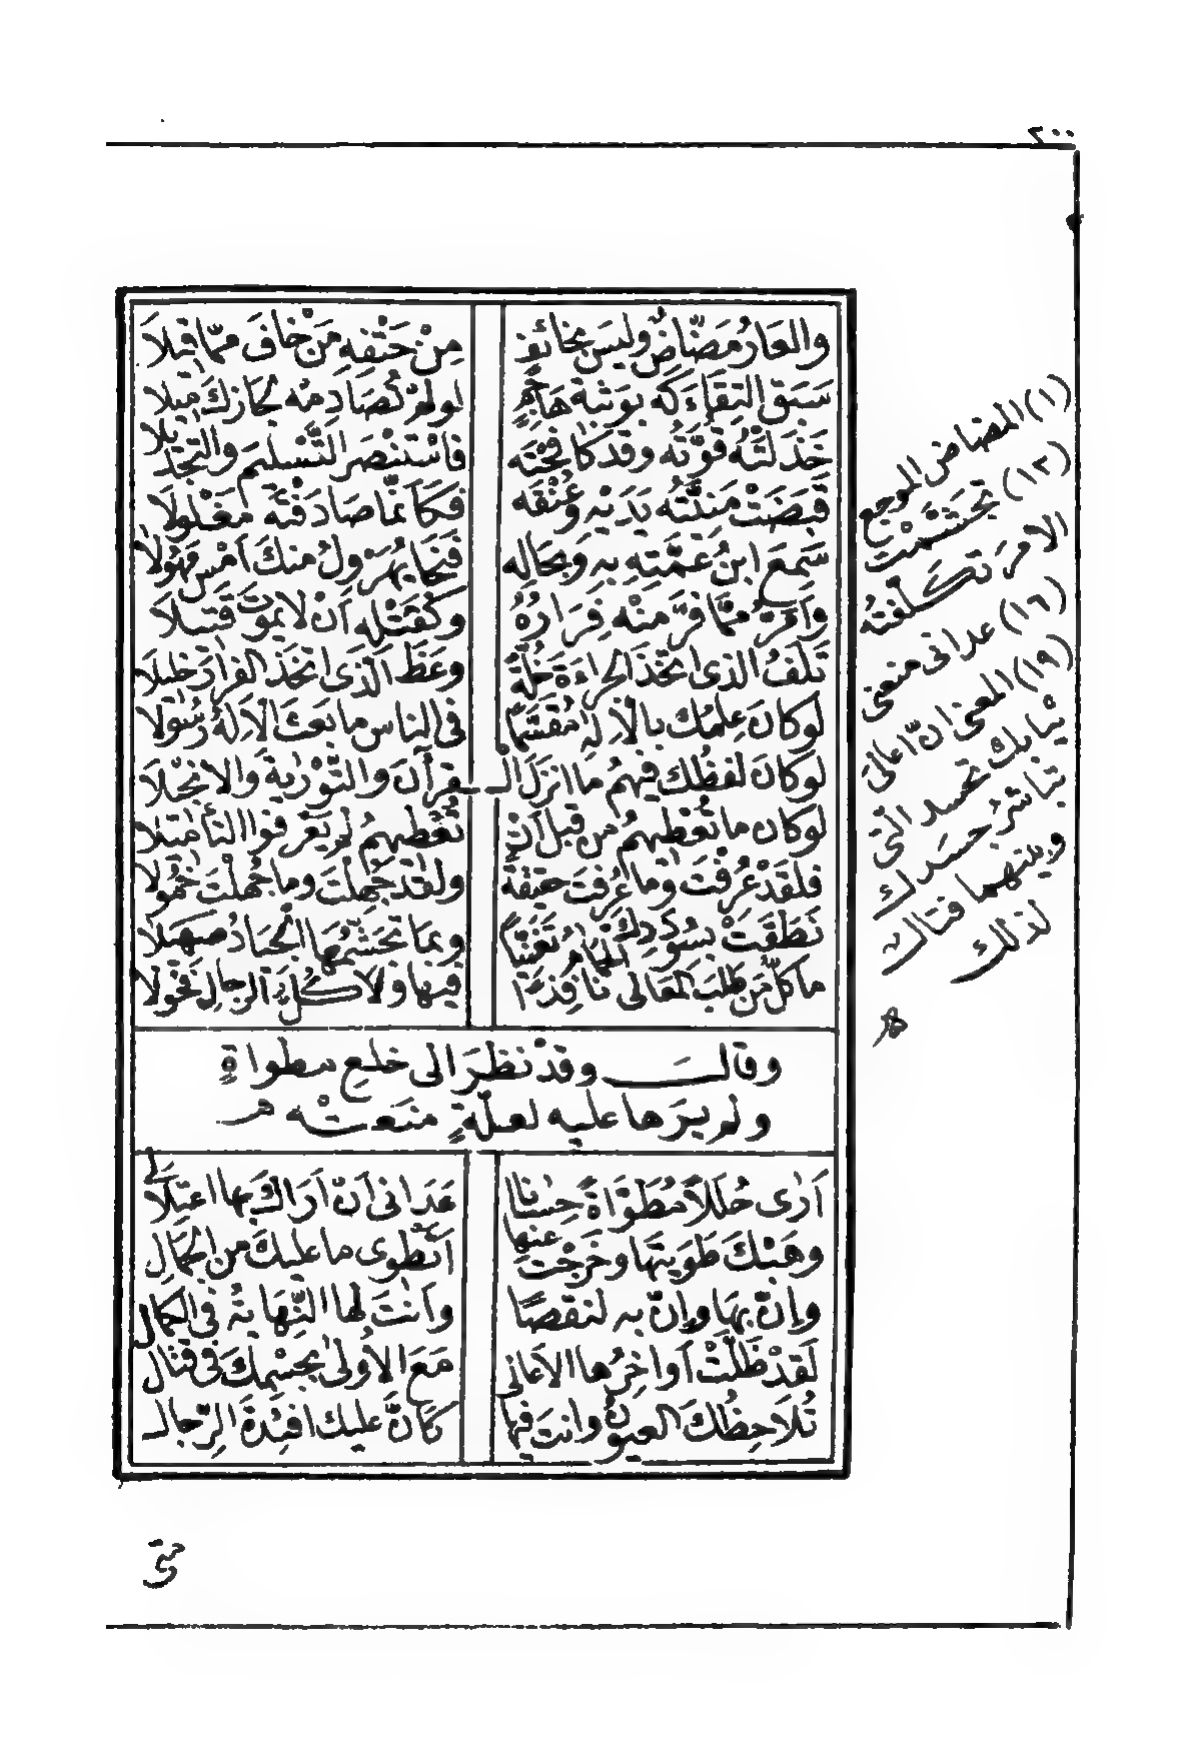 ٢٠٠
والعَارُ مَضَّاضٌ وليسَ بخائفٍ مِنْ حَتْفِهِ مَنْ خافَ ممّا قيلَا
سَبَقَ التقَاءَكَه بوَثبةِ هَاجمٍ لو لم تُصَادِمْه لجَازكَ ميلا
خَذَلَتْهُ قُوَّتُه وقد كافحْتَه فاسْتنْصَر التَّسْليمَ والتجْديلا
قَبَضَتْ مَنيَّتُه يَدَيْهِ وعُنْقَه فكَأنّما صَادَفْتَه مَغْلولَا
سَمِعَ ابنُ عَمَّتِهِ بهِ وَبحَالِه فَنجَا يُهَرْوِلُ منكَ اَمْسِ مَهُولَا
وَاَمَرُّ ممّا فَرَّ منْه فِرَارُهُ وكَقَتْلِه اَنْ لا يموتَ قَتيلَا
تَلَفُ الذى اتّخذَ الجراءَةَ خُلَّةً وعَظَ الّذى اتخَذَ الفرارَ خليلَا
لوكانَ عِلْمُك بالاِلهِ مُقَسَّمًا فى الناس ما بَعَثَ الاِلهُ رَسُولَا
لوكانَ لفظُك فيهمُ ما انزلَ الـقرآنَ والتَّوْرٰيةَ والانجيلَا
لوكان ما تُعْطيهمُ من قبل اَنْ تُعْطيهمُ لم يَعْرفوا التأميلَا
فلقَدْ عُرفتَ وما عُرفتَ حقيقةً ولقد جُهلْتَ وما جُهلْتَ خمُولَا
نَطَقَتْ بسُؤدَدِكَ الحمَامُ تَغَنّيًا وبمَا تجَشّمُهَا الجيَادُ صَهيلَا
ما كلُّ مَن طلبَ المعَالىَ نافِذًا فيها ولا كُلُّ الرجالِ فحُولَا
وقالـــ وقدْ نظرَ الى خلعٍ مطواةٍ
ولم يَرَها عليه لعلّةٍ منَعتْه
اَرٰى حُلَلاً مُطَوَّاةً حِسٰانا عَدَانى اَنْ اَرَاكَ بها اعتِلَالى
وهَبْكَ طَوَيتَهَا وخرجْتَ عنها اَتَطْوى ما عليكَ من الجمَالِ
وإنّ بهَا وإنّ به لنقصًا وَاَنتَ لها النّهَايةُ فى الكمال
لَقَدْ ظَلّتْ اَواخِرُها الاَعالى مَعَ الاُولىٰ بجسْمكَ فى قتالِ
تُلَاحِظُكَ العيونُ وانتَ فيها كأنَّ عليك افئِدَةَ الرّجالـ
(١) المضاض الموجع
(١٢) تجَشَّمْتَ
الامرَ تكَلّفتُه
(١٦) عدانى منعنى
(١٩) المعنى انّ اعالى
ثيابك تحسد التى
تباشرُ جسدك
وبينهما قتال
لذلك